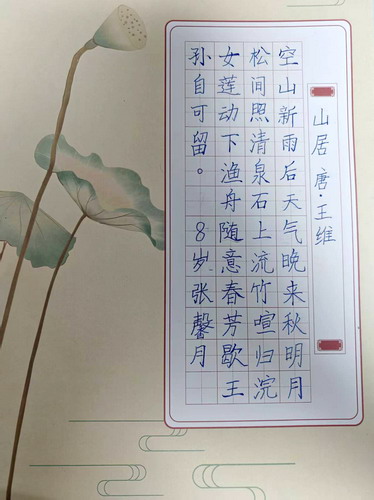 山居 唐·王维
空山新雨后天气晚来秋明月
松间照清泉石上流竹喧归浣
女莲动下渔舟随意春芳歇王
孙自可留。 8岁张馨月